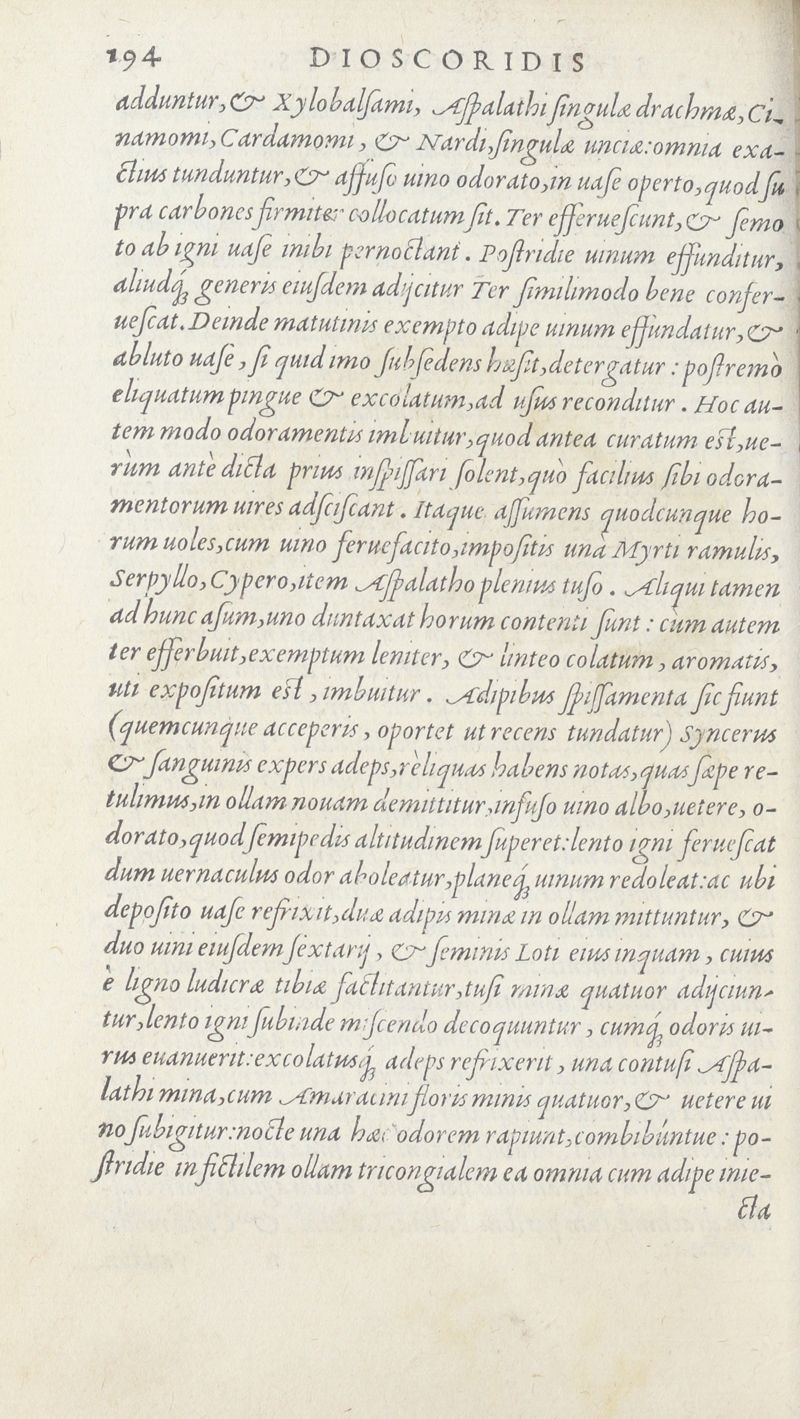 194 DIOSCORIDIS
adduntur, & Xylobalſami, Aſpalathi ſingulæ drachmæ, Ci-
namomi, Cardamomi, & Nardi, ſingulæ unciæ: omnia exa-
ctius tunduntur, & affuſo uino odorato, in uaſe operto, quod ſu
pra carbones firmiter collocatum ſit. Ter efferueſcunt, & ſemo
to ab igni uaſe inibi pernoctant. Poſtridie uinum effunditur,
aliudq́; generis eiuſdem adijcitur Ter ſimilimodo bene confer-
ueſcat. Deinde matutinis exempto adipe uinum effundatur, &
abluto uaſe, ſi quid imo ſubſedens hæſit, detergatur: poſtremò
eliquatum pingue & excolatum, ad uſus reconditur. Hoc au-
tem modo odoramentis imbuitur, quod antea curatum eſt, ue-
rùm antè dicta prius inſpiſſari ſolent, quò facilius ſibi odora-
mentorum uires adſciſcant. Itaque aſſumens quodcunque ho-
rum uoles, cum uino feruefacito, impoſitis unà Myrti ramulis,
Serpyllo, Cypero, item Aſpalatho plenius tuſo. Aliqui tamen
ad hunc aſum, uno duntaxat horum contenti ſunt: cùm autem
ter efferbuit, exemptum leniter, & linteo colatum, aromatis,
uti expoſitum eſt, imbuitur. Adipibus ſpiſſamenta ſic fiunt
(quemcunque acceperis, oportet ut recens tundatur) Syncerus
& ſanguinis expers adeps, rèliquas habens notas, quas ſæpe re-
tulimus, in ollam nouam demittitur, infuſo uino albo, uetere, o-
dorato, quod ſemipedis altitudinem ſuperet: lento igni ferueſcat
dum uernaculus odor aboleatur, planeq́; uinum redoleat: ac ubi
depoſito uaſe refrixit, duæ adipis minæ in ollam mittuntur, &
duo uini eiuſdem ſextarij, & ſeminis Loti eius inquam, cuius
è ligno ludicræ tibiæ factitantur, tuſi minæ quatuor adijciun-
tur, lento igni ſubinde miſcendo decoquuntur, cumq́; odoris ui-
rus euanuerit: excolatusq́; adeps refrixerit, una contuſi Aſpa-
lathi mina, cum Amaracini floris minis quatuor, & uetere ui
no ſubigitur: nocte una hæc odorem rapiunt, combibúntue: po-
ſtridie in fictilem ollam tricongialem ea omnia cum adipe inie-
cta